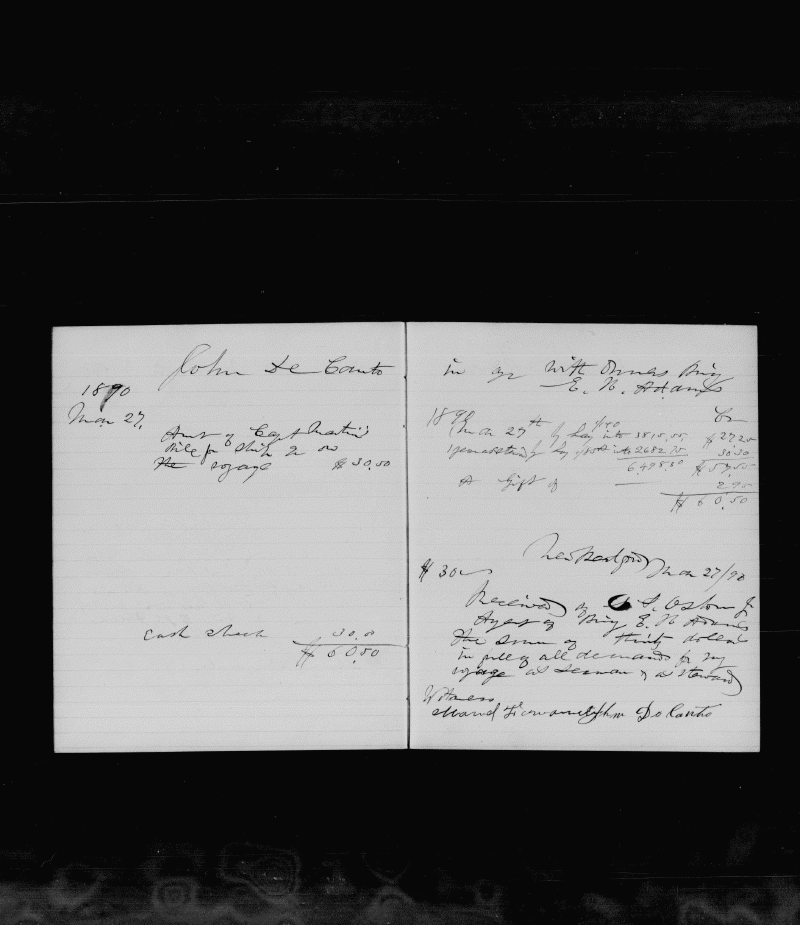 John De Canto
1890
Mar 27,
Amt of Capt Martin's
Bill for Ship a/c on
the voyage $30.50
Cash check 30.00
$60.50
in a/c with Owners Brig
E. H. Adams
1890 Cr
Mar 27th by Lay 1/140 into 3815.55 $27.25
by Lay into 2682.75 30.30
6498.30 $57.55
A Gift of 2.95
$60.50
New Bedford Mar 27/90
$30
Received of S. Osborn Jr
Agent of Brig E. H. Adams
the sum of thirty dollars
in full of all demands for my
voyage as seaman & as steward
Witness
John De Canto